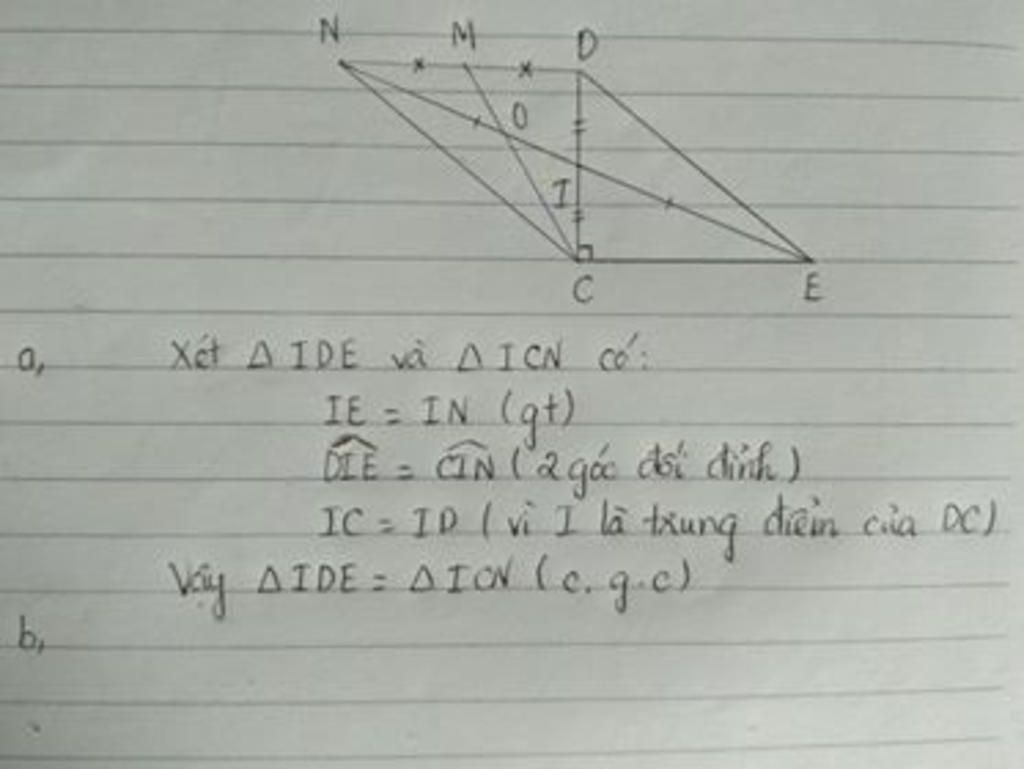 N M D
O
I
C E
a, Xét Δ IDE và Δ ICN có:
IE = IN (gt)
DIE = CIN (2 góc đối đỉnh)
IC = ID (vì I là trung điểm của DC)
Vậy ΔIDE = ΔICN (c.g.c)
b,